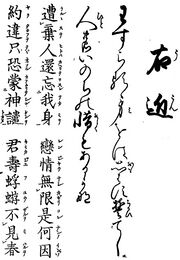 右近
わすらるゝ身をは思はす誓てし
人のいのちの惜くもあるかな
遭棄人還忘我身
戀情無限是何因
約違只恐蒙神譴
君壽蜉蝣不見春